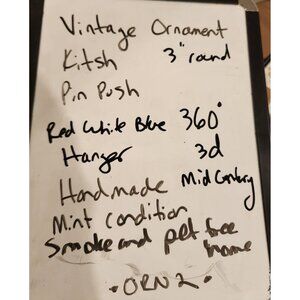 Vintage Ornament
Kitsh 3" round
Pin Push
Red White Blue 360°
Hanger 3d
Handmade Mid Century
Mint condition
Smoke and pet free
home
• ORN 2 •